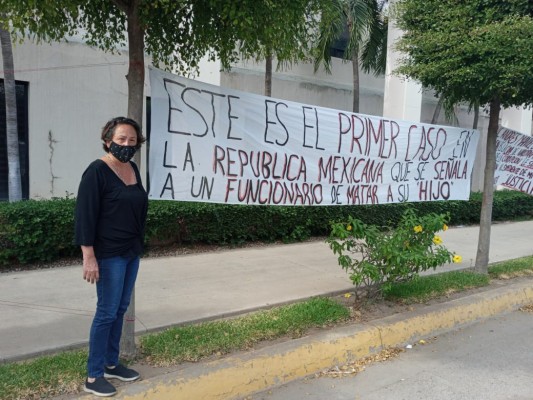 ESTE ES EL PRIMER CASO EN
LA REPUBLICA MEXICANA QUE SE SEÑALA
A UN FUNCIONARIO DE MATAR A SU "HIJO"
JUSTICIA